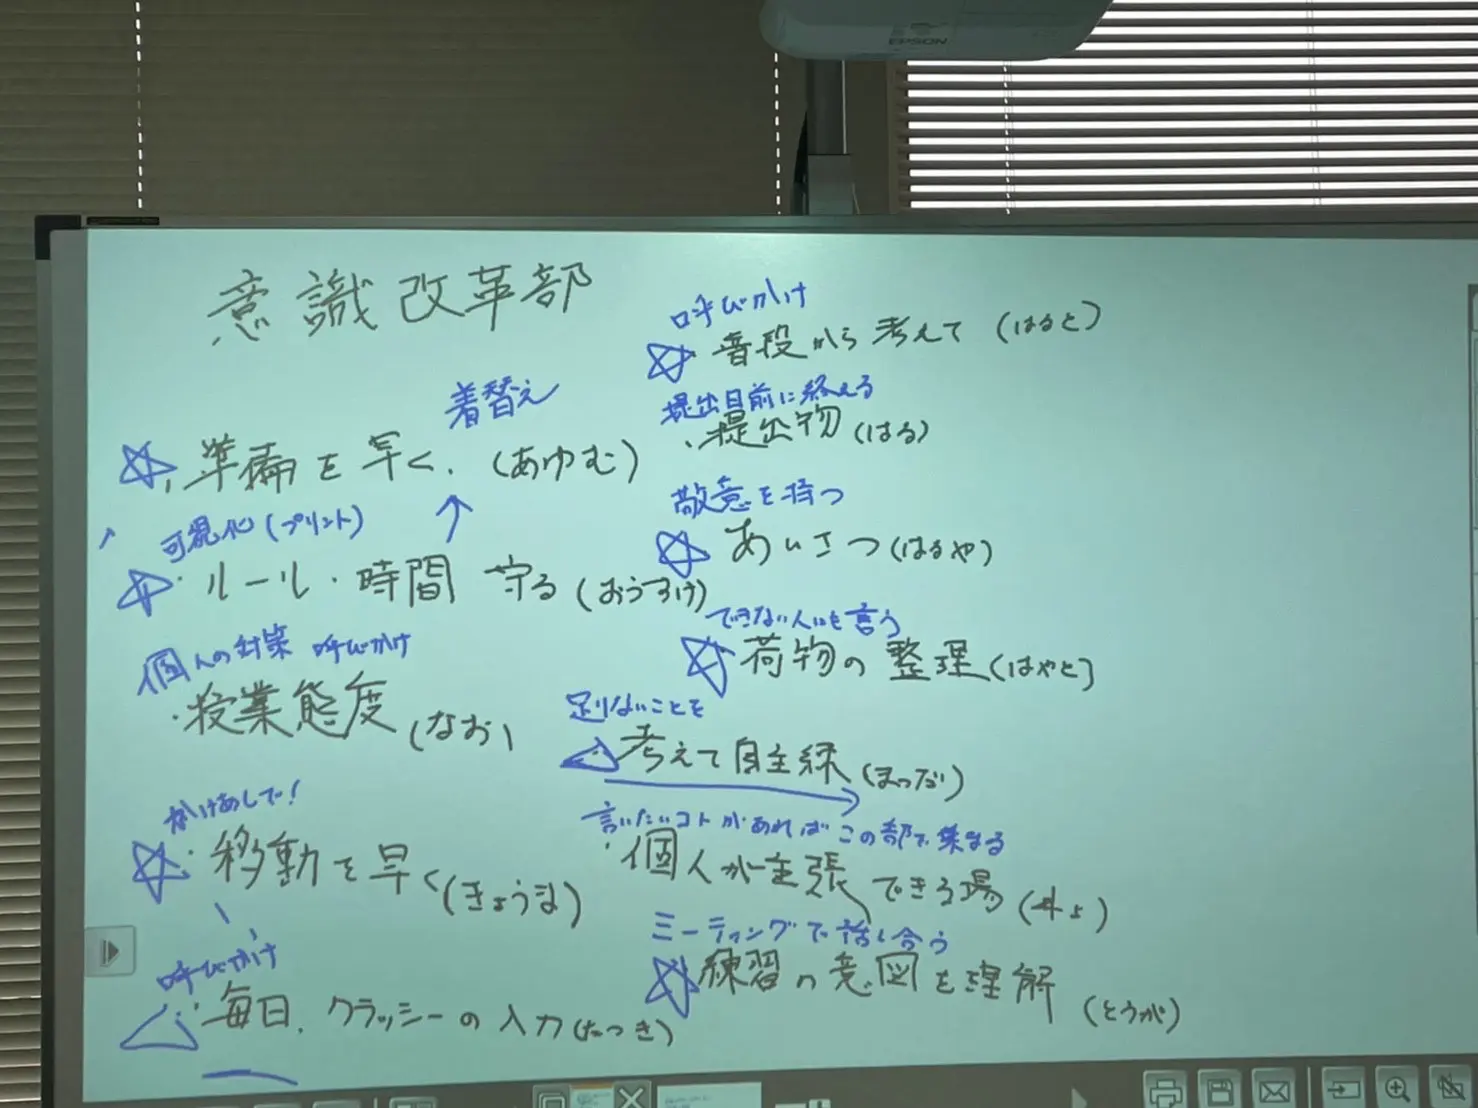 EPSON
意識改革部
着替え
準備を早く.(あゆむ)
可視化(プリント)
・ルール・時間 守る(おうすけ)
個人の対策 呼びかけ
・授業態度(なお)
かけあしで!
・移動を早く(きょうま)
呼びかけ
・毎日、クラッシーの入力(たつき)
呼びかけ
普段から考えて(はると)
提出日前に終える
・提出物(はる)
敬意を持つ
あいさつ(はるや)
できない人にも言う
荷物の整理(はやと)
足りないことを
考えて自主練(まつだい)
言いたいコトがあればこの部で集まる
・個人が主張できる場
ミーティングで話し合う
練習の意図を理解(とうが)